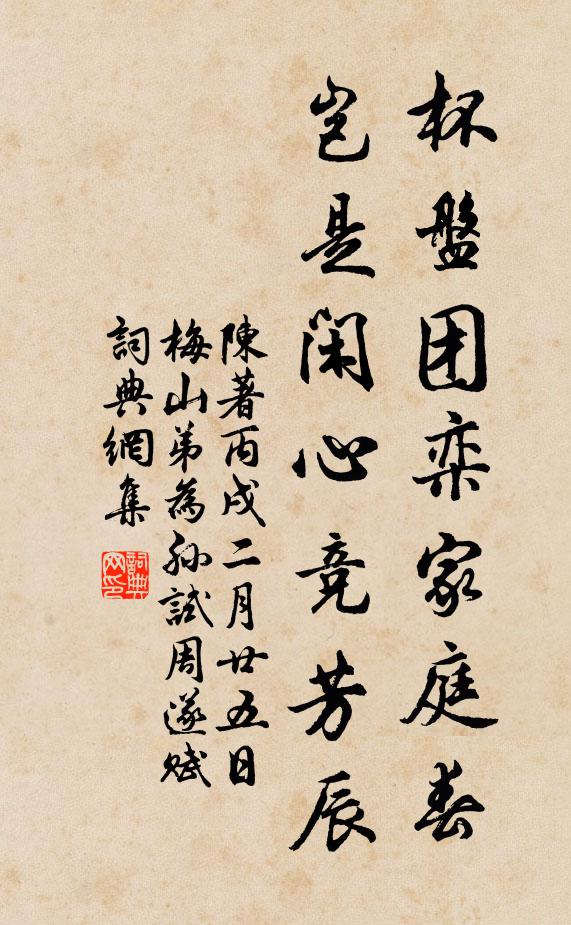 杯盤团栾家庭春
岂是闲心竞芳辰
陳著丙戌二月廿五日
梅山弟為孙試周遂赋
詞典網集
詞典網印